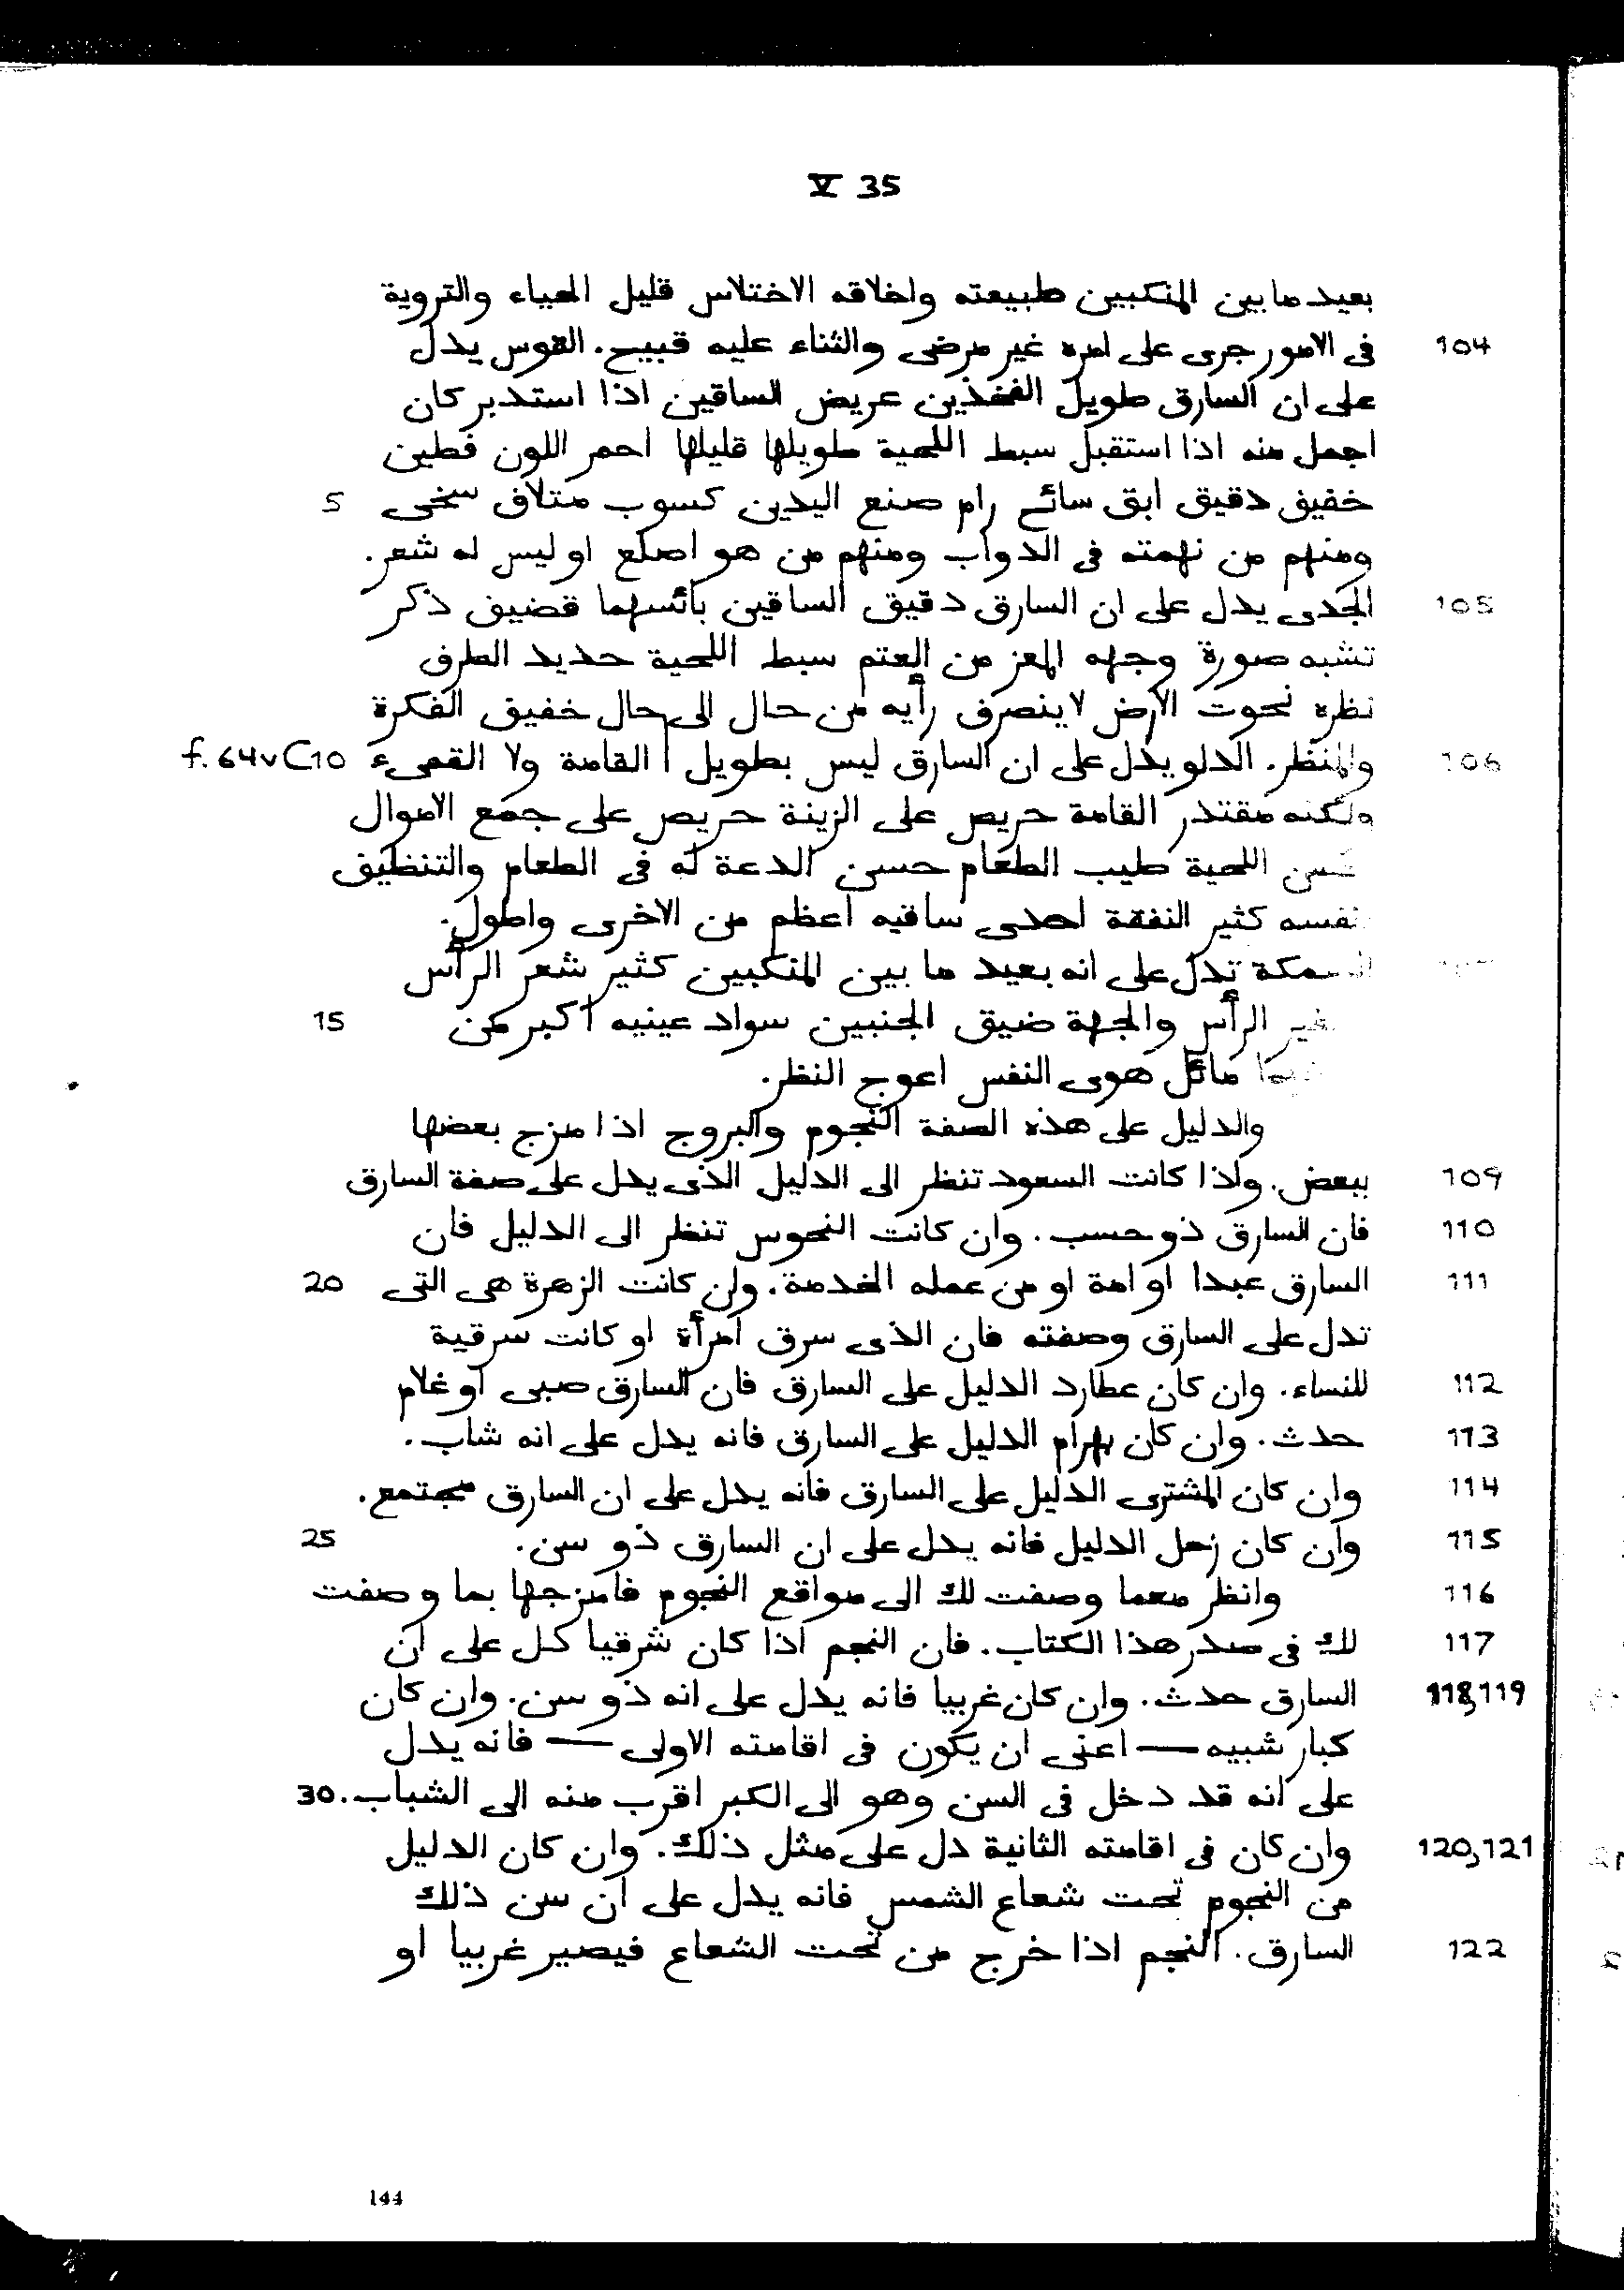 V 35
بعيد ما بين المنكبين طبيعته واخلاقه الاختلاس قليل الحياء والتروية
104 فى الامور جرى على امره غير مرضى والثناء عليه قبيح. القوس يدل
على ان السارق طويل الفخذين عريض الساقين اذا استدبر كان
اجمل منه اذا استقبل سبط اللحية طويلها قليلها احمر اللون فطين
خفيف دقيق ابق سائح رام صنع اليدين كسوب متلاف سخى 5
ومنهم من نهمته فى الدواب ومنهم من هو اصلع او ليس له شعر.
105 الجدى يدل على ان السارق دقيق الساقين بائسهما قضيف ذكر
تشبه صورة وجهه المعز من العتم سبط اللحية حديد الطرف
نظره نحوت الارض لا ينصرف رأيه من حال الى حال خفيف الفكرة
106 والمنظر. الدلو يدل على ان السارق ليس بطويل | القامة ولا القمىء f. 64v C10
ولكنه مقتدر القامة حريص على الزينة حريص على جمع الاموال
اللحية طيب الطعام حسن الدعة له فى الطعام والتنظيف
نفسه كثير النفقة احدى ساقيه اعظم من الاخرى واطول.
السمكة تدل على انه بعيد ما بين المنكبين كثير شعر الرأس
الرأس والجبهة ضيق الجنبين سواد عينيه اكبر من 15
مائل هوى النفس اعوج النظر.
والدليل على هذه الصفة النجوم والبروج اذا مزج بعضها
109 ببعض. واذا كانت السعود تنظر الى الدليل الذى يدل على صفة السارق
110 فان السارق ذو حسب. وان كانت النحوس تنظر الى الدليل فان
111 السارق عبدا او امة او من عمله الخدمة. وان كانت الزهرة هى التى 20
تدل على السارق وصفته فان الذى سرق امرأة او كانت سرقية
112 للنساء. وان كان عطارد الدليل على السارق فان السارق صبى او غلام
113 حدث. وان كان بهرام الدليل على السارق فانه يدل على انه شاب.
114 وان كان المشترى الدليل على السارق فانه يدل على ان السارق مجتمع.
115 وان كان زحل الدليل فانه يدل على ان السارق ذو سن. 25
116 وانظر معما وصفت لك الى مواقع النجوم فامزجها بما وصفت
117 لك فى صدر هذا الكتاب. فان النجم اذا كان شرقيا كل على ان
118,119 السارق حدث. وان كان غربيا فانه يدل على انه ذو سن. وان كان
كبار شبيه — اعنى ان يكون فى اقامته الاولى — فانه يدل
على انه قد دخل فى السن وهو الى الكبر اقرب منه الى الشباب. 30
120,121 وان كان فى اقامته الثانية دل على مثل ذلك. وان كان الدليل
من النجوم تحت شعاع الشمس فانه يدل على ان سن ذلك
122 السارق. النجم اذا خرج من تحت الشعاع فيصير غربيا او
144